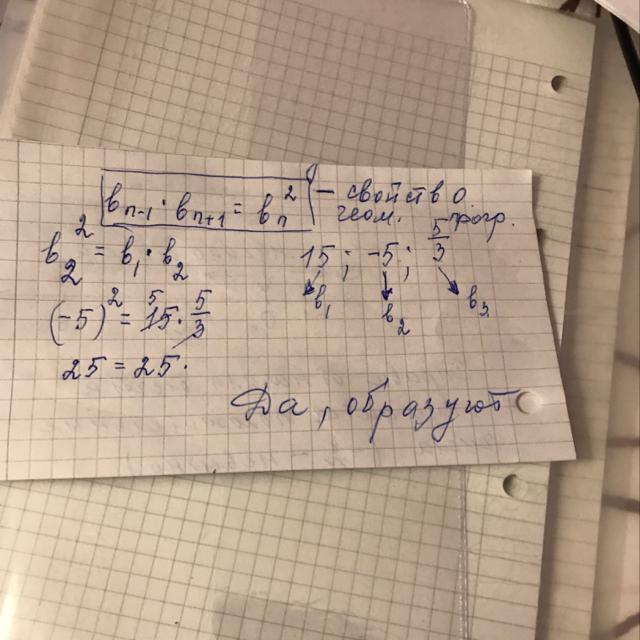 bₙ₋₁ · bₙ₊₁ = bₙ² – свойство
геом. прогр.
b₂² = b₁ · b₂
15 ; -5 ; 5/3
b₁ b₂ b₃
(-5)² = 15 · 5/3
5
25 = 25.
Да, образуют